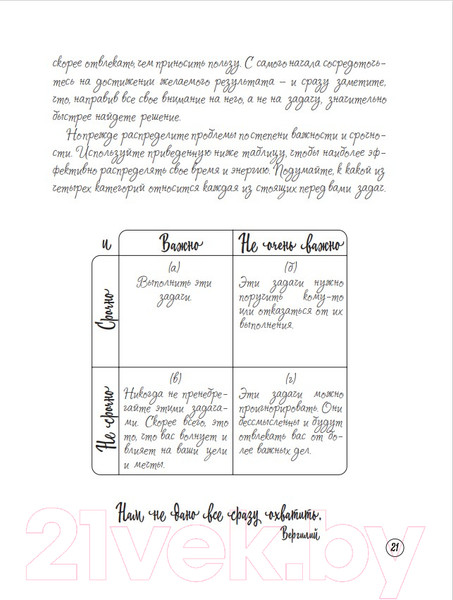 скорее отвлекать, чем приносить пользу. С самого начала сосредоточь-
тесь на достижении желаемого результата – и сразу заметите,
что, направив все свое внимание на него, а не на задачу, значительно
быстрее найдете решение.
Но прежде распределите проблемы по степени важности и срочно-
сти. Используйте приведенную ниже таблицу, чтобы наиболее эф-
фективно распределять свое время и энергию. Подумайте, к какой из
четырех категорий относится каждая из стоящих перед вами задач.
и Важно Не очень важно
Срочно
(а)
Выполнить эти
задачи.
(б)
Эти задачи нужно
поручить кому-то
или отказаться от их
выполнения.
Не срочно
(в)
Никогда не пренебре-
гайте этими задача-
ми. Скорее всего, это
то, что вас волнует и
влияет на ваши цели
и мечты.
(г)
Эти задачи можно
проигнорировать. Они
бессмысленны и будут
отвлекать вас от бо-
лее важных дел.
Нам не дано все сразу охватить.
Вергилий
21
21vek.by